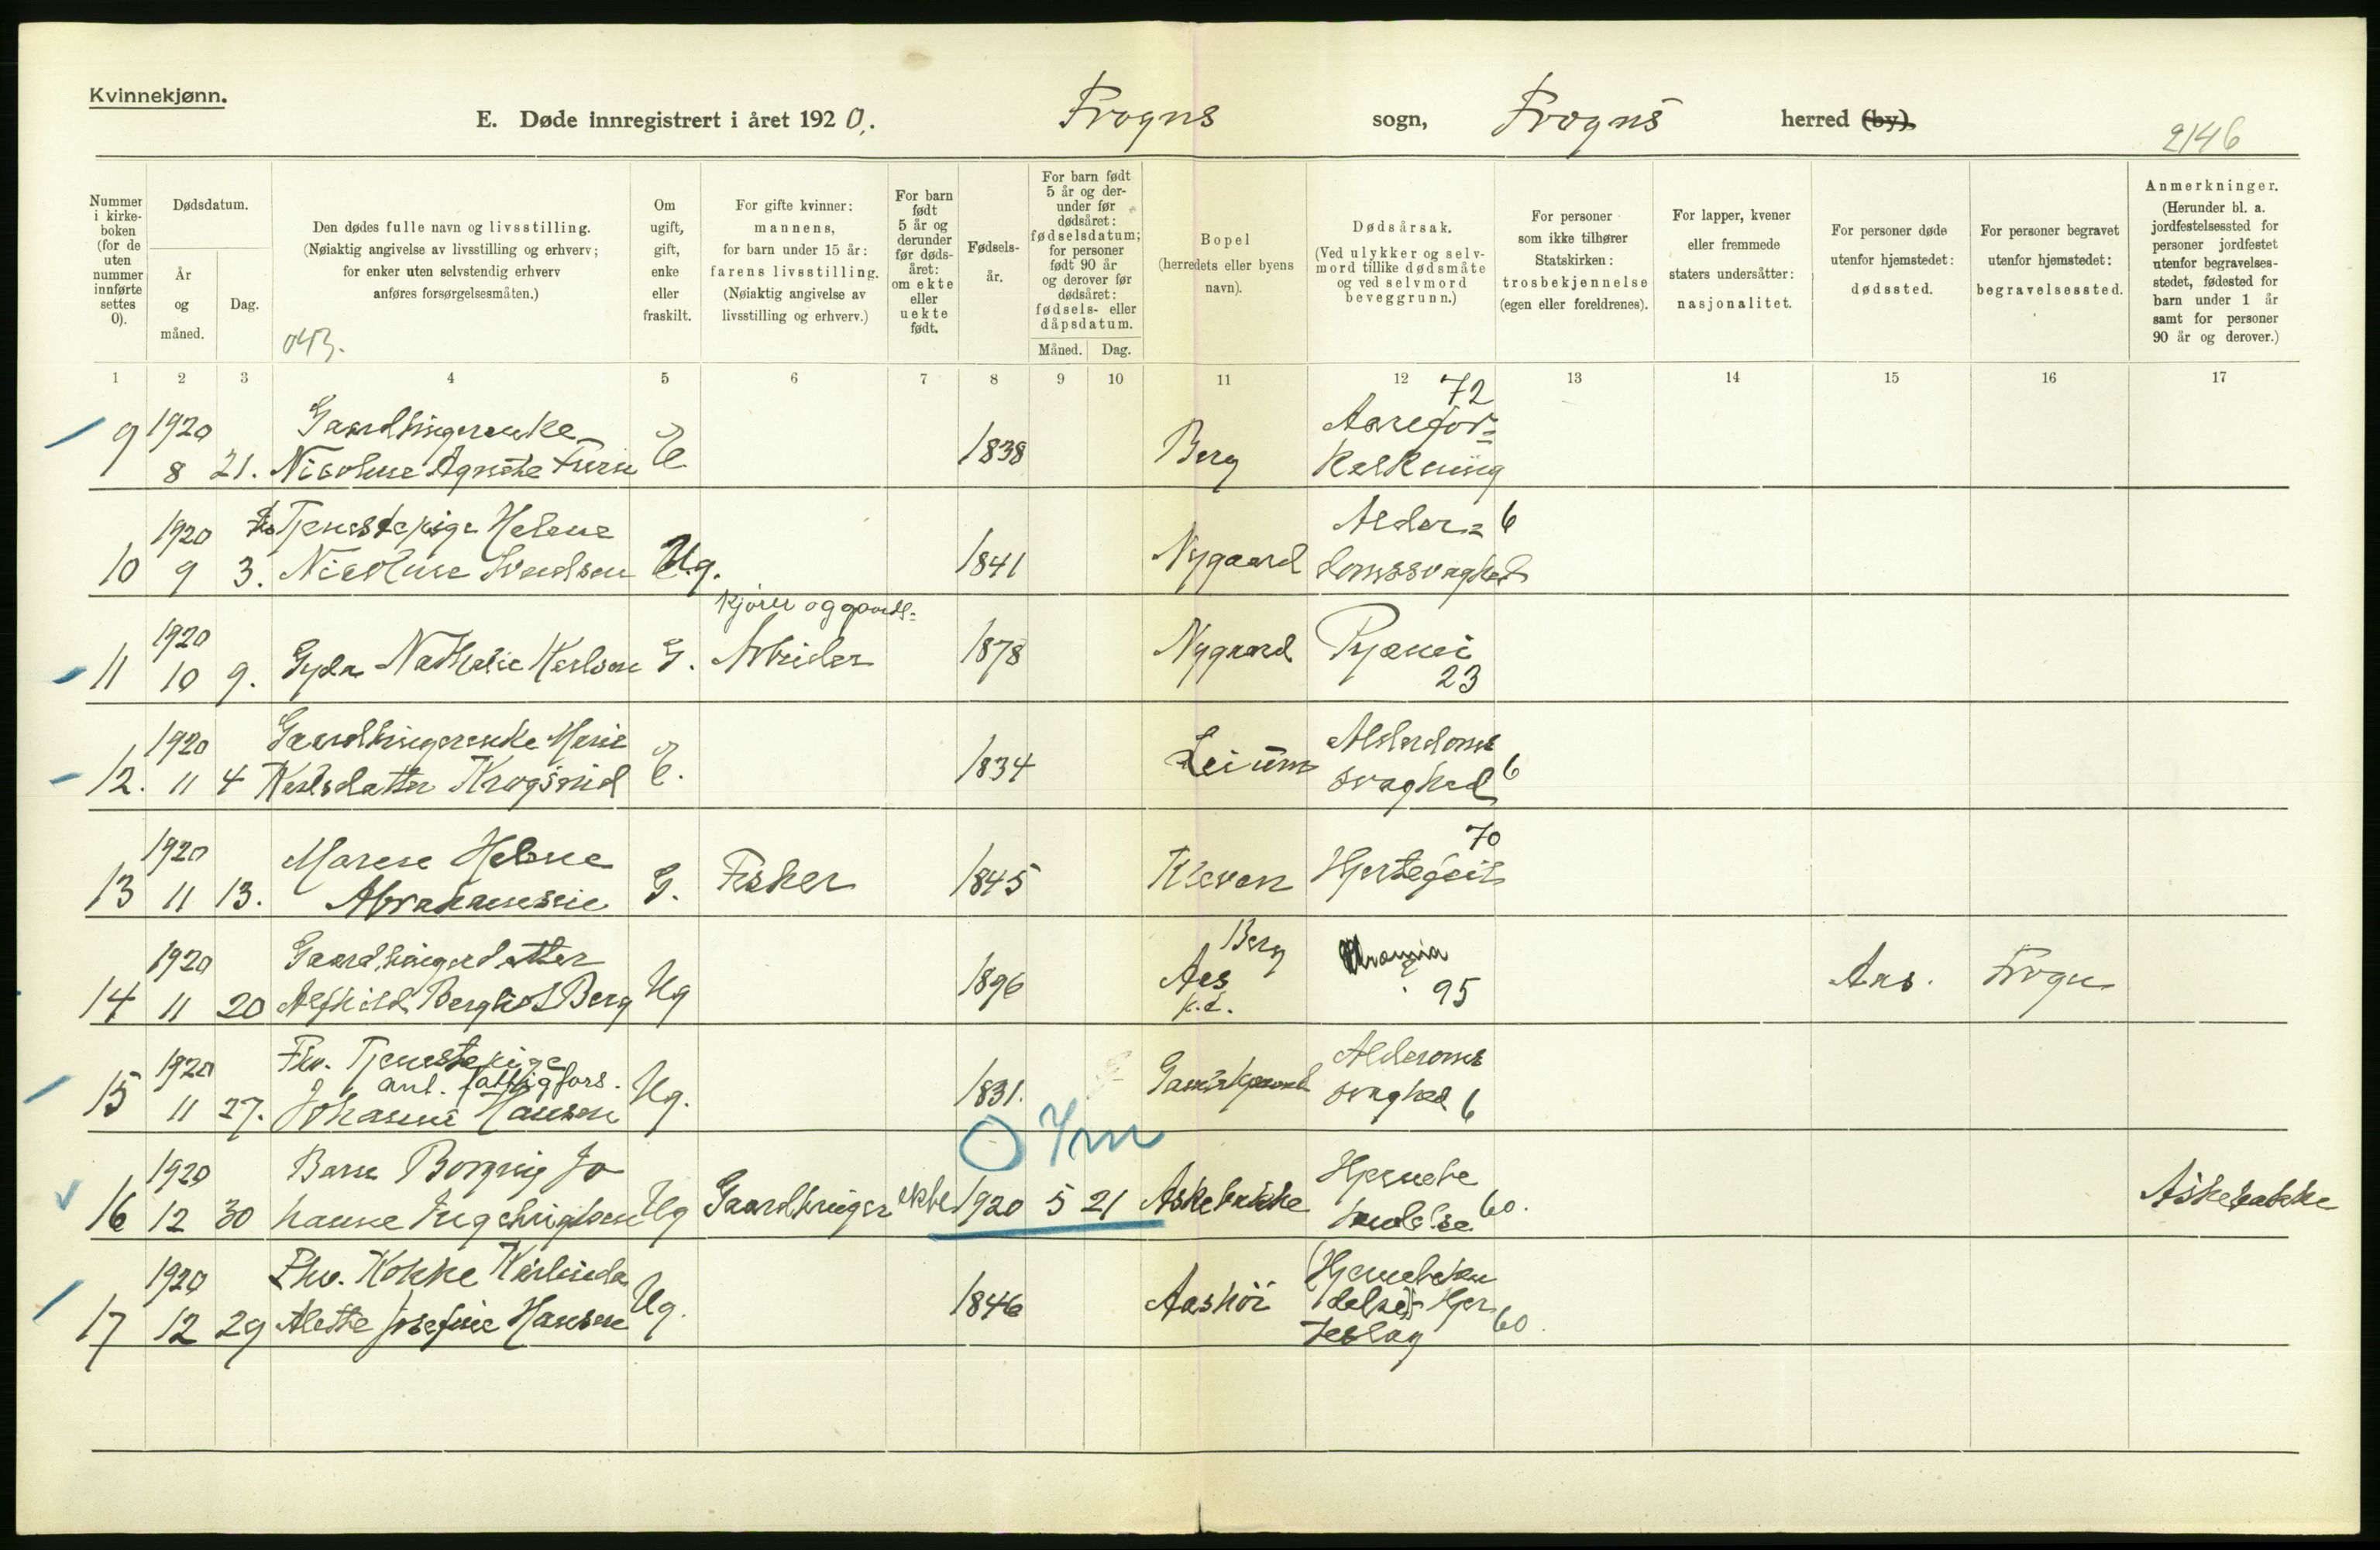 Kvinnekjønn.
E. Døde innregistrert i året 1920. Frogns sogn, Frogns herred (by).
2146
Nummer i kirke-boken (for de uten nummer innførte settes 0).
Dødsdatum.
År og måned.
Dag.
Den dødes fulle navn og livsstilling.
(Nøiaktig angivelse av livsstilling og erhverv;
for enker uten selvstendig erhverv
anføres forsørgelsesmåten.)
043.
Om ugift, gift, enke eller fraskilt.
For gifte kvinner:
mannens,
for barn under 15 år:
farens livsstilling.
(Nøiaktig angivelse av
livsstilling og erhverv.)
For barn født 5 år og derunder før døds-året: om ekte eller uekte født.
Fødsels-år.
For barn født 5 år og der-under før dødsåret: fødselsdatum; for personer født 90 år og derover før dødsåret: fødsels- eller dåpsdatum.
Måned. Dag.
Bopel
(herredets eller byens
navn).
Dødsårsak.
(Ved ulykker og selv-
mord tillike dødsmåte
og ved selvmord
beveggrunn.)
For personer
som ikke tilhører
Statskirken:
trosbekjennelse
(egen eller foreldrenes).
For lapper, kvener
eller fremmede
staters undersåtter:
nasjonalitet.
For personer døde
utenfor hjemstedet:
dødssted.
For personer begravet
utenfor hjemstedet:
begravelsessted.
Anmerkninger.
(Herunder bl. a.
jordfestelsessted for
personer jordfestet
utenfor begravelses-
stedet, fødested for
barn under 1 år
samt for personer
90 år og derover.)
1 2 3 4 5 6 7 8 9 10 11 12 13 14 15 16 17
72
1920 Gaardbrugerenke Aarefor=
9 8 21. Nicoline Agnethe E 1838 Berg kalkning
1920 Tjenestepige Helene Alder= 6
10 9 3. Nicoline Svendsen Ug. 1841 Nygaard domssvaghed
kjører og gaards=
1920
11 10 9. Gyda Nathalie Karlsen G. Arbeider 1878 Nygaard Pyæmi
23
1920 Gaardbrugerenke Marie Alderdoms
12. 11 4 Karlsdatter Krogsrud E. 1834 svaghed 6
1920 Maren Helene 70
13 11 13. Abrahamsen G. Fisker 1845 Kleven Hjertefeil
1920 Gaardbrugerdatter Berg
14 11 20 Alfhild Bergliot Berg Ug 1896 Aas p.t. Uræmia 95 Aas. Frogn
1920 Fhv. Tjenestepige Alderdoms
ant. fattigfors.
15 11 27. Johanne Hansen Ug. 1831. svaghed 6
0 7m
1920 Barn Borgny Jo Hjernebe
16 12 30 hanne Ingebrigtsen Ug Gaardbruger ekte 1920 5 21 Askebakke tendelse 60. Askebakke
1920 Fhv. Kokke Karlinda (Hjernebeten
17 12 29 Alette Josefine Hansen Ug. 1846 Aashøi delse) Hjer
teslag 60.